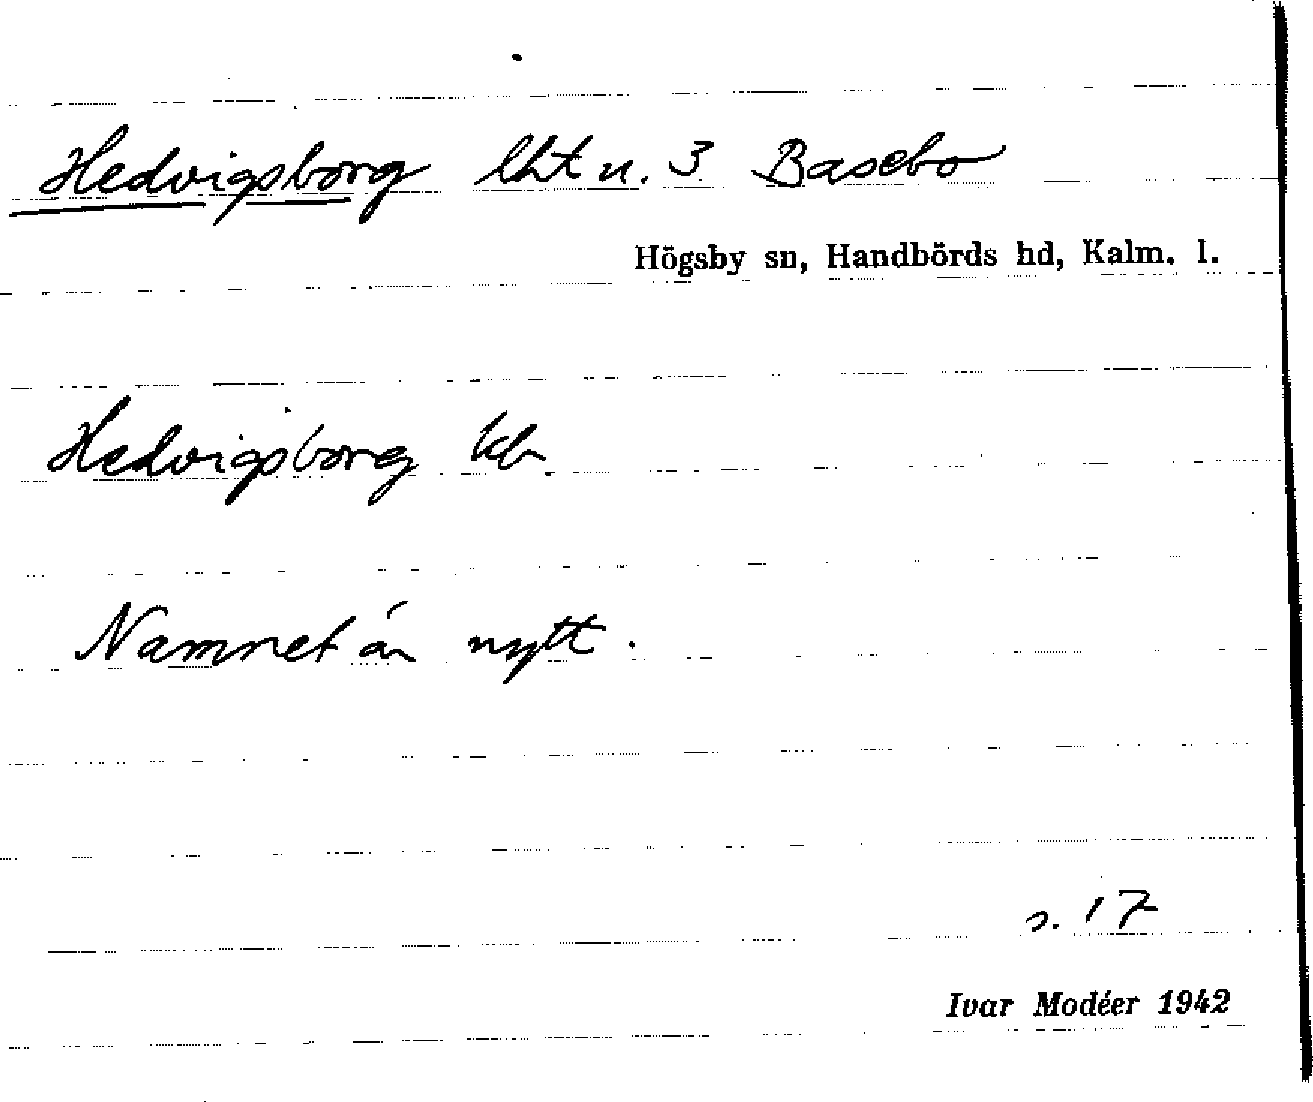 Hedvigsborg lht u. 3 Basebo
Högsby sn, Handbörds hd, Kalm. l.
Hedvigsborg kb
Namnet är nytt.
s. 17
Ivar Modéer 1942